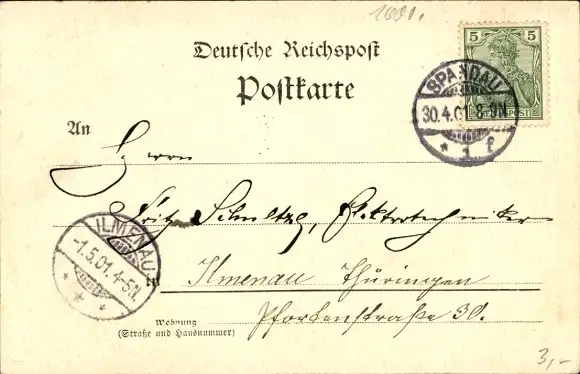 1001.
Deutsche Reichspost
Postkarte
5
REICHSPOST
SPANDAU
30.4.01.8-9N.
* 1 f
An
Herrn
Fritz Schultze, Elektrotechniker
ILMENAU
-1.5.01.4-5N.
in
Ilmenau Thüringen
Pfortenstraße 30.
Wohnung
(Straße und Hausnummer)
3,-